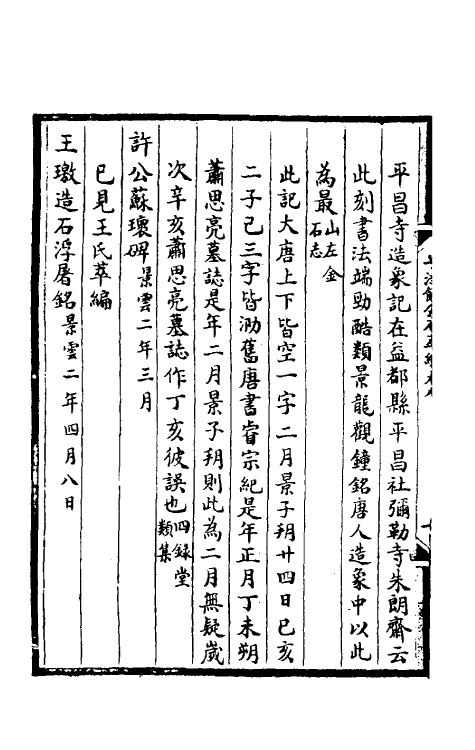 平昌寺造象記在益都縣平昌社彌勒寺朱朗齋云
此刻書法端勁酷類景龍觀鐘銘唐人造象中以此
為最山左金石志
此記大唐上下皆空一字二月景子朔廿四日已亥
二子己三字皆泐舊唐書睿宗紀是年正月丁未朔
蕭思亮墓誌是年二月景子朔則此為二月無疑歲
次辛亥蕭思亮墓誌作丁亥彼誤也四錄堂類集
許公蘇瓌碑景雲二年三月
已見王氏萃編
王璬造石浮屠銘景雲二年四月八日